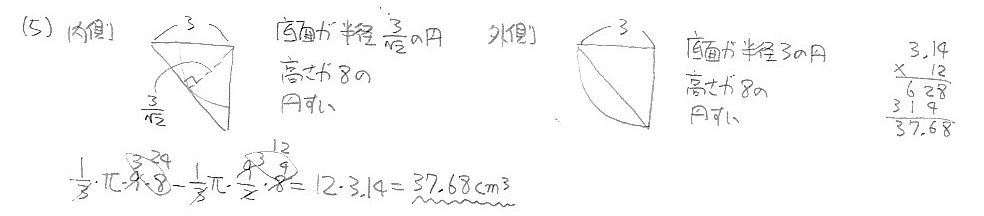 (5) 内側
3
3/√2
底面が半径3/√2の円
高さが8の
円すい
外側
3
底面が半径3の円
高さが8の
円すい
3.14
× 12
628
314
37.68
1/3・π・9・8 − 1/3π・9/2・8 = 12・3.14 = 37.68cm³
3 24
3 4
12